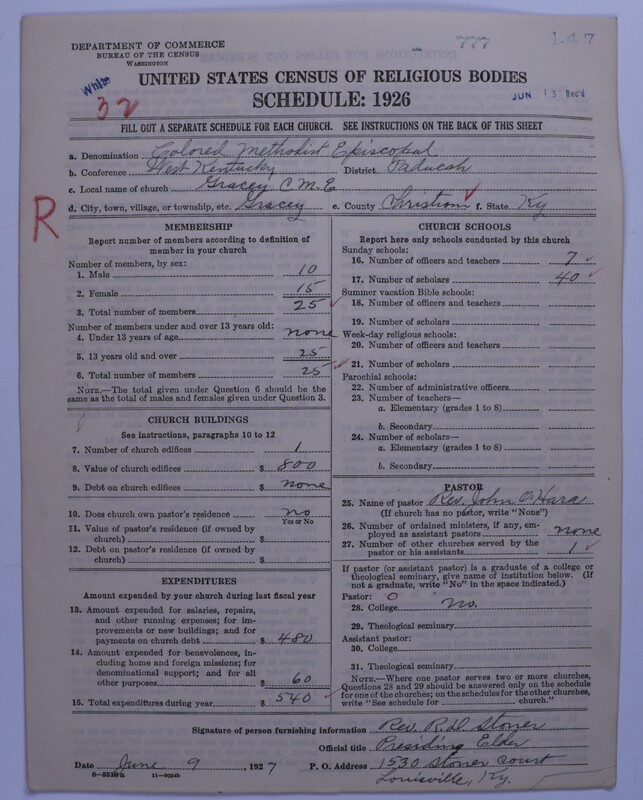 DEPARTMENT OF COMMERCE
BUREAU OF THE CENSUS
WASHINGTON
147
White
32
UNITED STATES CENSUS OF RELIGIOUS BODIES
SCHEDULE: 1926
JUN 13 Rec'd
FILL OUT A SEPARATE SCHEDULE FOR EACH CHURCH. SEE INSTRUCTIONS ON THE BACK OF THIS SHEET
a. Denomination Colored Methodist Episcopal
b. Conference West Kentucky District Paducah
c. Local name of church Gracey C.M.E
d. City, town, village, or township, etc. Gracey e. County Christian f. State Ky
R
MEMBERSHIP
Report number of members according to definition of member in your church
Number of members, by sex:
1. Male 10
2. Female 15
3. Total number of members 25
Number of members under and over 13 years old:
4. Under 13 years of age none
5. 13 years old and over 25
6. Total number of members 25
NOTE.—The total given under Question 6 should be the
same as the total of males and females given under Question 3.
CHURCH BUILDINGS
See instructions, paragraphs 10 to 12
7. Number of church edifices 1
8. Value of church edifices $ 800
9. Debt on church edifices $ none
10. Does church own pastor's residence no
Yes or No
11. Value of pastor's residence (if owned by
church) $
12. Debt on pastor's residence (if owned by
church) $
EXPENDITURES
Amount expended by your church during last fiscal year
13. Amount expended for salaries, repairs,
and other running expenses; for im-
provements or new buildings; and for
payments on church debt $ 480
14. Amount expended for benevolences, in-
cluding home and foreign missions; for
denominational support; and for all
other purposes $ 60
15. Total expenditures during year $ 540
CHURCH SCHOOLS
Report here only schools conducted by this church
Sunday schools:
16. Number of officers and teachers 7
17. Number of scholars 40
Summer vacation Bible schools:
18. Number of officers and teachers
19. Number of scholars
Week-day religious schools:
20. Number of officers and teachers
21. Number of scholars
Parochial schools:
22. Number of administrative officers
23. Number of teachers—
a. Elementary (grades 1 to 8)
b. Secondary
24. Number of scholars—
a. Elementary (grades 1 to 8)
b. Secondary
PASTOR
25. Name of pastor Rev. John O'Hara
(If church has no pastor, write "None")
26. Number of ordained ministers, if any, em-
ployed as assistant pastors none
27. Number of other churches served by the
pastor or his assistants 1
If pastor (or assistant pastor) is a graduate of a college or
theological seminary, give name of institution below. (If
not a graduate, write "No" in the space indicated.)
Pastor: O
28. College no.
29. Theological seminary
Assistant pastor:
30. College
31. Theological seminary
NOTE.—Where one pastor serves two or more churches,
Questions 28 and 29 should be answered only on the schedule
for one of the churches; on the schedules for the other churches,
write "See schedule for church."
Signature of person furnishing information Rev. R.D. Stoner
Official title Presiding Elder
Date June 9, 1927 P. O. Address 1530 Stoner Court
Louisville, Ky.